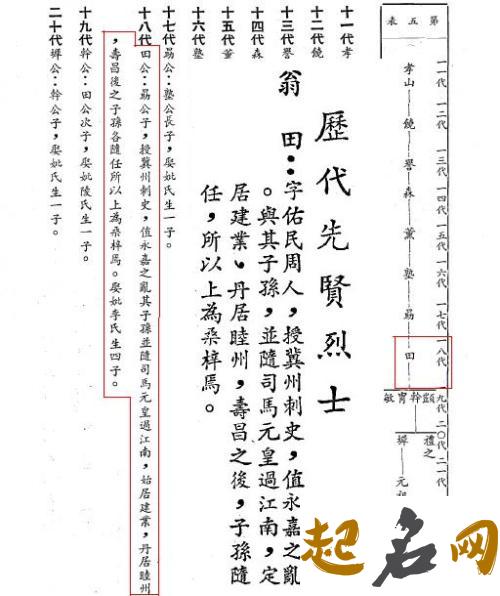 第五表
一一代 一二代 一三代 一四代 一五代 一六代 一七代 一八代 一九代 二〇代 二一代
孝山—饒—譽—森—薰—塾—勗—田
顗幹胄敏
禮之
樨—元
歷代先賢烈士
翁田：字佑民周人，授冀州刺史，值永嘉之亂
。與其子孫，並隨司馬元皇過江南，定
居建業、丹居睦州，壽昌之後，子孫隨
任，所以上為桑梓焉。
十一代孝
十二代饒
十三代譽
十四代森
十五代薰
十六代塾
十七代勗公：塾公長子，娶妣氏生一子。
十八代田公：勗公子，授冀州刺史，值永嘉之亂其子孫並隨司馬元皇過江南，始居建業，丹居睦州
，壽昌後之子孫各隨任所以上為桑梓焉。娶妣李氏生四子。
十九代幹公：田公次子，娶妣陵氏生一子。
二十代樨公：幹公子，娶妣氏生一子。
起名网